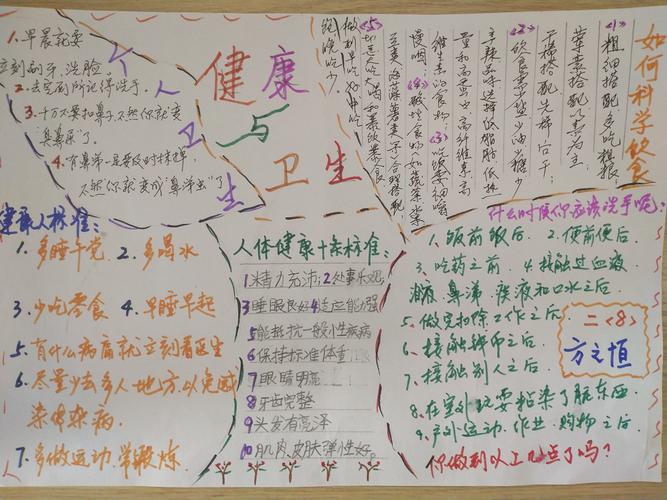 个人卫生
1.早晨就要
立刻刷牙,洗脸。
2.去完厕所记得洗手。
3.千万不要扣鼻子,不然你就变
"臭鼻屎"了。
4.有鼻涕一定要及时抹掉
不然你就变成"鼻涕虫"了
健康
与
卫生
如何科学饮食
<1>粗细搭配多吃粗粮
荤素搭配以素为主,
干稀搭配先稀后干;
<2>饮食要少盐少油少糖少
辛辣品选择低脂肪低热
量和高蛋白高纤维素高
维生素的食物;<3>吃饭要细嚼
慢咽;<4>酸性食物如蔬菜水果
<5>切忌大吃大喝和暴饮暴食
做到早吃好中吃
饱晚吃少
健康人标准:
1.多睡午觉 2.多喝水
3.少吃零食 4.早睡早起
5.有什么病痛就立刻看医生
6.尽量少去多人地方以免感
染传染病.
7.多做运动.常锻炼.
人体健康十条标准:
1精力充沛;2处事乐观;
3睡眠良好4适应能力强
5能抵抗一般小性疾病
6保持标准体重
7眼睛明亮
8牙齿完整
9头发有亮泽
10肌肉、皮肤弹性好。
什么时候你应该洗手呢?
1、饭前饭后. 2.便前便后.
3、吃药之前.4.接触过血液
泪液.鼻涕.痰液和口水之后.
5、做完扫除工作之后
6、接触钱币之后.
7、接触别人之后.
8.在室外玩耍粘染了脏东西
9.户外运动.作业.购物之后.
你做到以上几点了吗?
二<8>
方之恒